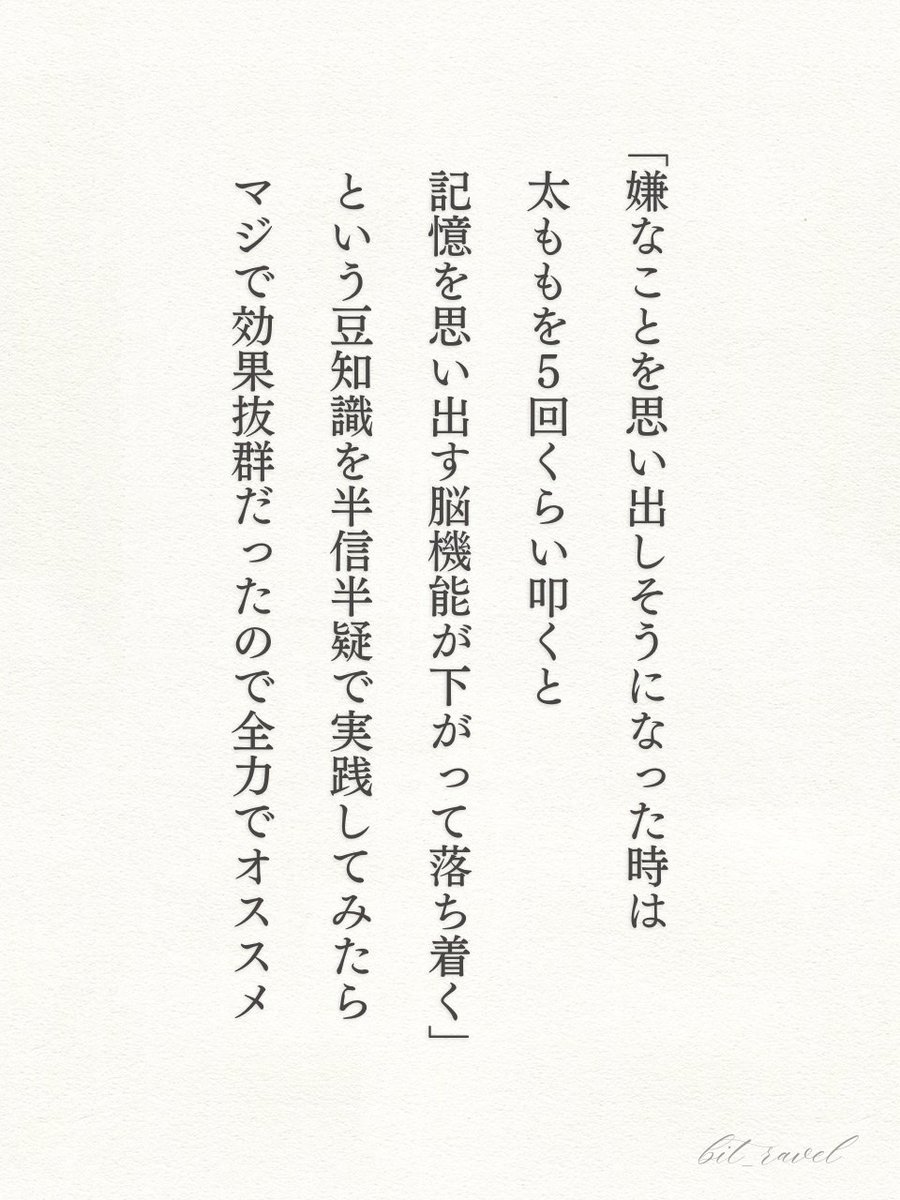 「嫌なことを思い出しそうになった時は
太ももを5回くらい叩くと
記憶を思い出す脳機能が下がって落ち着く」
という豆知識を半信半疑で実践してみたら
マジで効果抜群だったので全力でオススメ
bit_ravel